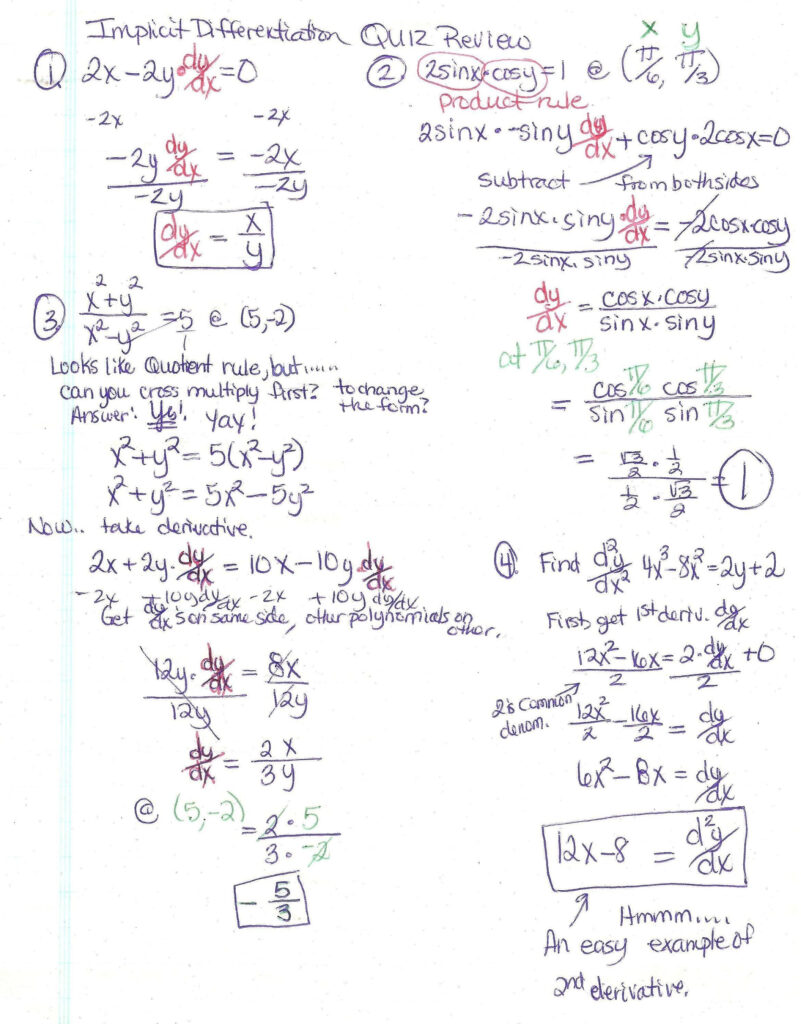 Implicit Differentiation Quiz Review
① 2x - 2y · dy/dx = 0
-2x -2x
-2y dy/dx / -2y = -2x / -2y
dy/dx = x/y
x y
② 2sinx · cosy = 1 @ (π/6, π/3)
product rule
2sinx · -siny dy/dx + cosy · 2cosx = 0
subtract from both sides
-2sinx · siny · dy/dx / -2sinx · siny = -2cosx · cosy / -2sinx · siny
dy/dx = cosx · cosy / sinx · siny
at π/6, π/3
= cos π/6 cos π/3 / sin π/6 sin π/3
= √3/2 · 1/2 / 1/2 · √3/2 = 1
③ x² + y² / x² - y² = 5/1 @ (5, -2)
Looks like Quotient rule, but......
can you cross multiply first? to change the form?
Answer: Yes! Yay!
x² + y² = 5(x² - y²)
x² + y² = 5x² - 5y²
Now.. take derivative.
2x + 2y · dy/dx = 10x - 10y dy/dx
-2x + 10y dy/dx -2x + 10y dy/dx
Get dy/dx's on same side, other polynomials on other.
12y · dy/dx / 12y = 8x / 12y
dy/dx = 2x / 3y
@ (5, -2) = 2 · 5 / 3 · -2
- 5/3
④ Find d²y/dx² 4x³ - 8x² = 2y + 2
First, get 1st deriv. dy/dx
12x² - 16x / 2 = 2 · dy/dx + 0 / 2
2 is common denom.
12x²/2 - 16x/2 = dy/dx
6x² - 8x = dy/dx
12x - 8 = d²y/dx
Hmmm....
An easy example of
2nd derivative.